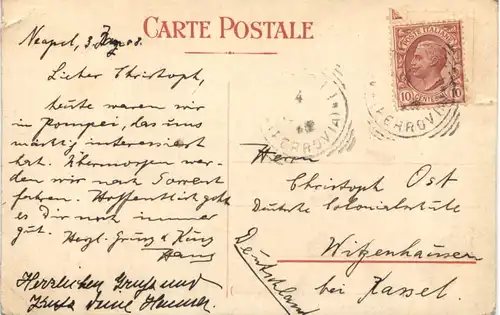 CARTE POSTALE
Neapel, 3. Aug. 08.
Lieber Christoph,
heute waren wir
in Pompei, das uns
mächtig interessiert
hat. Übermorgen wer-
den wir nach Sorrent
fahren. Hoffentlich geht
es Dir noch immer
gut. Herzl. Gruss & Kuss
Hans
Herzlichen Gruß und
Kuß Deine
POSTE ITALIANE
10 CENTESIMI 10
4
FERROVIA
FERROVIA
Herrn
Christoph Ost
Deutsche Colonialschule
Witzenhausen
bei Kassel.
Deutschland